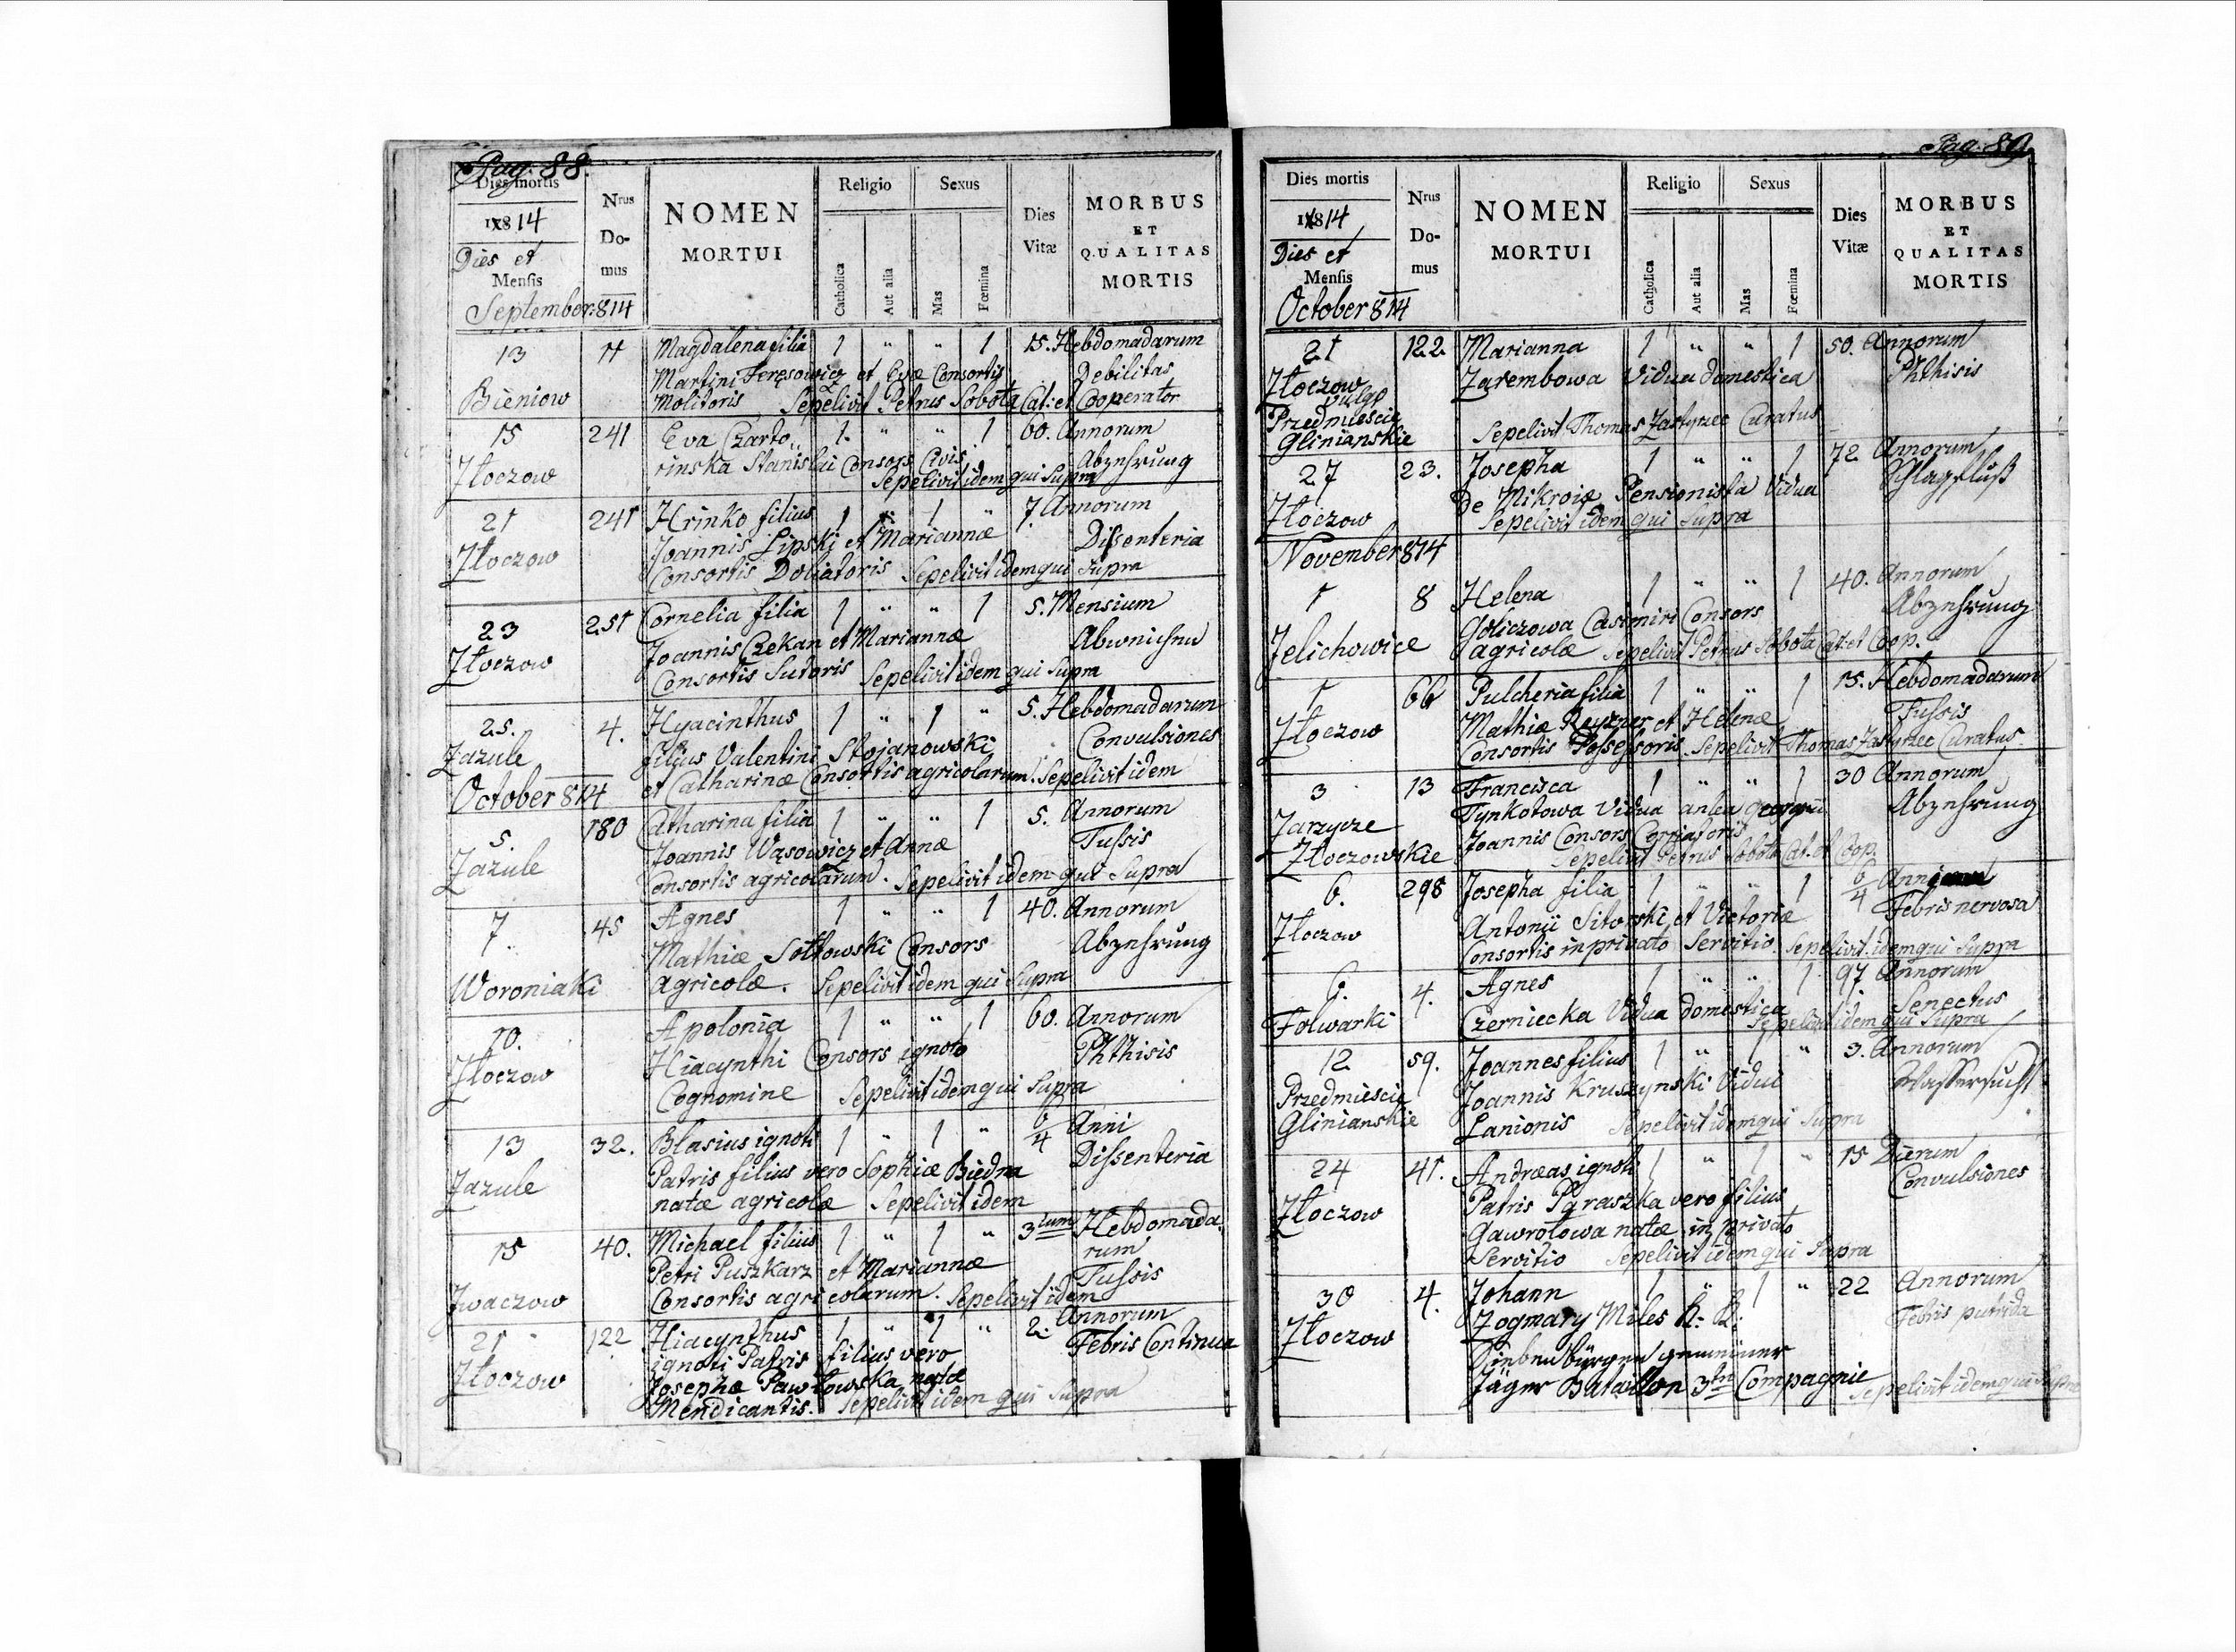 Pag. 88.
Dies mortis
1814
Dies et
Mensis
September 814
Nrus
Do-
mus
NOMEN
MORTUI
Religio
Catholica
Aut alia
Sexus
Mas
Fœmina
Dies
Vitæ
MORBUS
ET
QUALITAS
MORTIS
13 11 Magdalena filia 1 " " 1 15. Hebdomadarum
Martini Feresowicz et Evæ Consortis Debilitas
Bieniow Molitoris Sepelivit Petrus Sobota Cat: et Cooperator
15 241 Eva Czarto„ 1. " " 1 60. Annorum
Złoczow rinska Stanislai Consors Civis Abzehrung
Sepelivit idem qui Supra
21 241 Hrinko filius 1 " 1 " 7. Annorum
Joannis Lipski et Mariannæ Dissenteria
Złoczow Consortis Doliatoris Sepelivit idem qui supra
23 251 Cornelia filia 1 " " 1 5. Mensium
Joannis Czekan et Mariannæ Abweichen
Złoczow Consortis Sutoris Sepelivit idem qui Supra
25. 4. Hyacinthus 1 " 1 " 5. Hebdomadarum
Zazule filius Valentini Stojanowski Convulsiones
et Catharinæ Consortis agricolarum. Sepelivit idem
October 814
5. 180 Catharina filia 1 " " 1 5. Annorum
Joannis Wąsowicz et Annæ Tussis
Zazule Consortis agricolarum. Sepelivit idem qui Supra
7. 45 Agnes 1 " " 1 40. Annorum
Mathiæ Sołtowski Consors Abzehrung
Woroniaki agricolæ. Sepelivit idem qui Supra
10. Apolonia 1 " " 1 60. Annorum
Złoczow Hiacynthi Consors ignoto Phthisis
Cognomine Sepelivit idem qui Supra
13 32. Blasius ignoti 1 " 1 " 6/4 Anni
Patris filius vero Sophiæ Biedna Dissenteria
Zazule natæ agricolæ Sepelivit idem
15 40. Michael filius 1 " 1 " 3ium Hebdomada„
rum
Petri Puszkarz et Mariannæ Tussis
Zwaczow Consortis agricolarum. Sepelivit idem
21 122 Hiacynthus 1 " 1 " 2. Annorum
ignoti Patris filius vero Febris Continua
Złoczow Josephæ Pawłowska natæ
Mendicantis. Sepelivit idem qui Supra
Pag. 89.
Dies mortis
1814
Dies et
Mensis
October 814
Nrus
Do-
mus
NOMEN
MORTUI
Religio
Catholica
Aut alia
Sexus
Mas
Fœmina
Dies
Vitæ
MORBUS
ET
QUALITAS
MORTIS
21 122. Marianna 1 " " 1 50. Annorum
Złoczow Zarembowa Vidua domestica Phthisis
vulgo
Przedmiescie Sepelivit Thomas Zastyrzec Curatus
Glinianskie
27 23. Josepha 1 " " 1 72 Annorum
De Mikroiæ Pensionista Vidua Schlagfluß
Złoczow Sepelivit idem qui Supra
November 814
1 8 Helena 1 " " 1 40. Annorum
Goliczowa Casimiri Consors Abzehrung
Jelichowice agricolæ Sepelivit Petrus Sobota Cat: et Coop.
1 66 Pulcheria filia 1 " " 1 15. Hebdomadarum
Złoczow Mathiæ Reyzner et Helenæ Tussis
Consortis Possessoris. Sepelivit Thomas Zastyrzec Curatus.
3 13 Francisca 1 " " 1 30 Annorum
Zarzycze Tynkotowa Vidua antea Georgii Abzehrung
Złoczowskie Joannis Consors
Sepelivit Petrus Sobota Cat. et Coop.
6. 298 Josepha filia 1 " " 1 6/4 Anni
Antonij Sitorski et Victoriæ Febris nervosa
Złoczow Consortis in privato Servitio. Sepelivit idem qui Supra
6. 4. Agnes 1 " " 1 97. Annorum
Folwarki Czerniecka Vidua domestica Senectus
Sepelivit idem qui Supra
12. 59. Joannes filius 1 " 1 " 3. Annorum
Przedmiescie Joannis Kruszynski Vidui Wassersucht
Glinianskie Lanionis Sepelivit idem qui Supra
24 41. Andreas ignoti 1 " 1 " 15 Dierum
Patris Paraszka vero filius Convulsiones
Złoczow Gawrołowa natæ in privato
Servitio Sepelivit idem qui Supra
30 4. Johann 1 " 1 " 22 Annorum
Złoczow Zogmary Miles k. k. Febris putrida
Siebenbürgen gemeiner
Jäger Bataillon 3te Compagnie
Sepelivit idem qui Supra